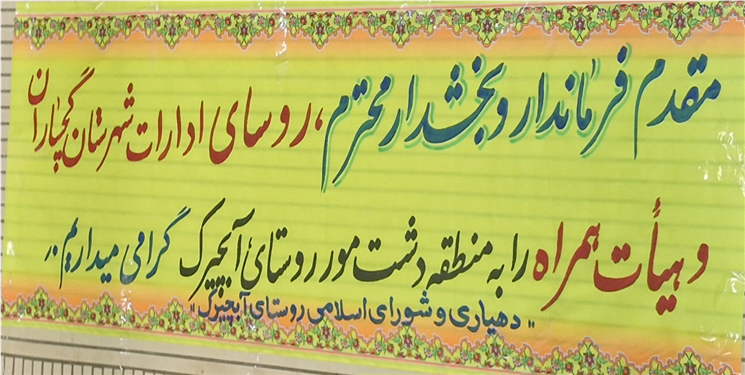 مقدم فرماندار و بخشدار محترم، روسای ادارات شهرستان گچساران
و هیأت همراه را به منطقه دشت مور روستای آبچیرک گرامی میداریم..
"دهیاری و شورای اسلامی روستای آبچیرک"